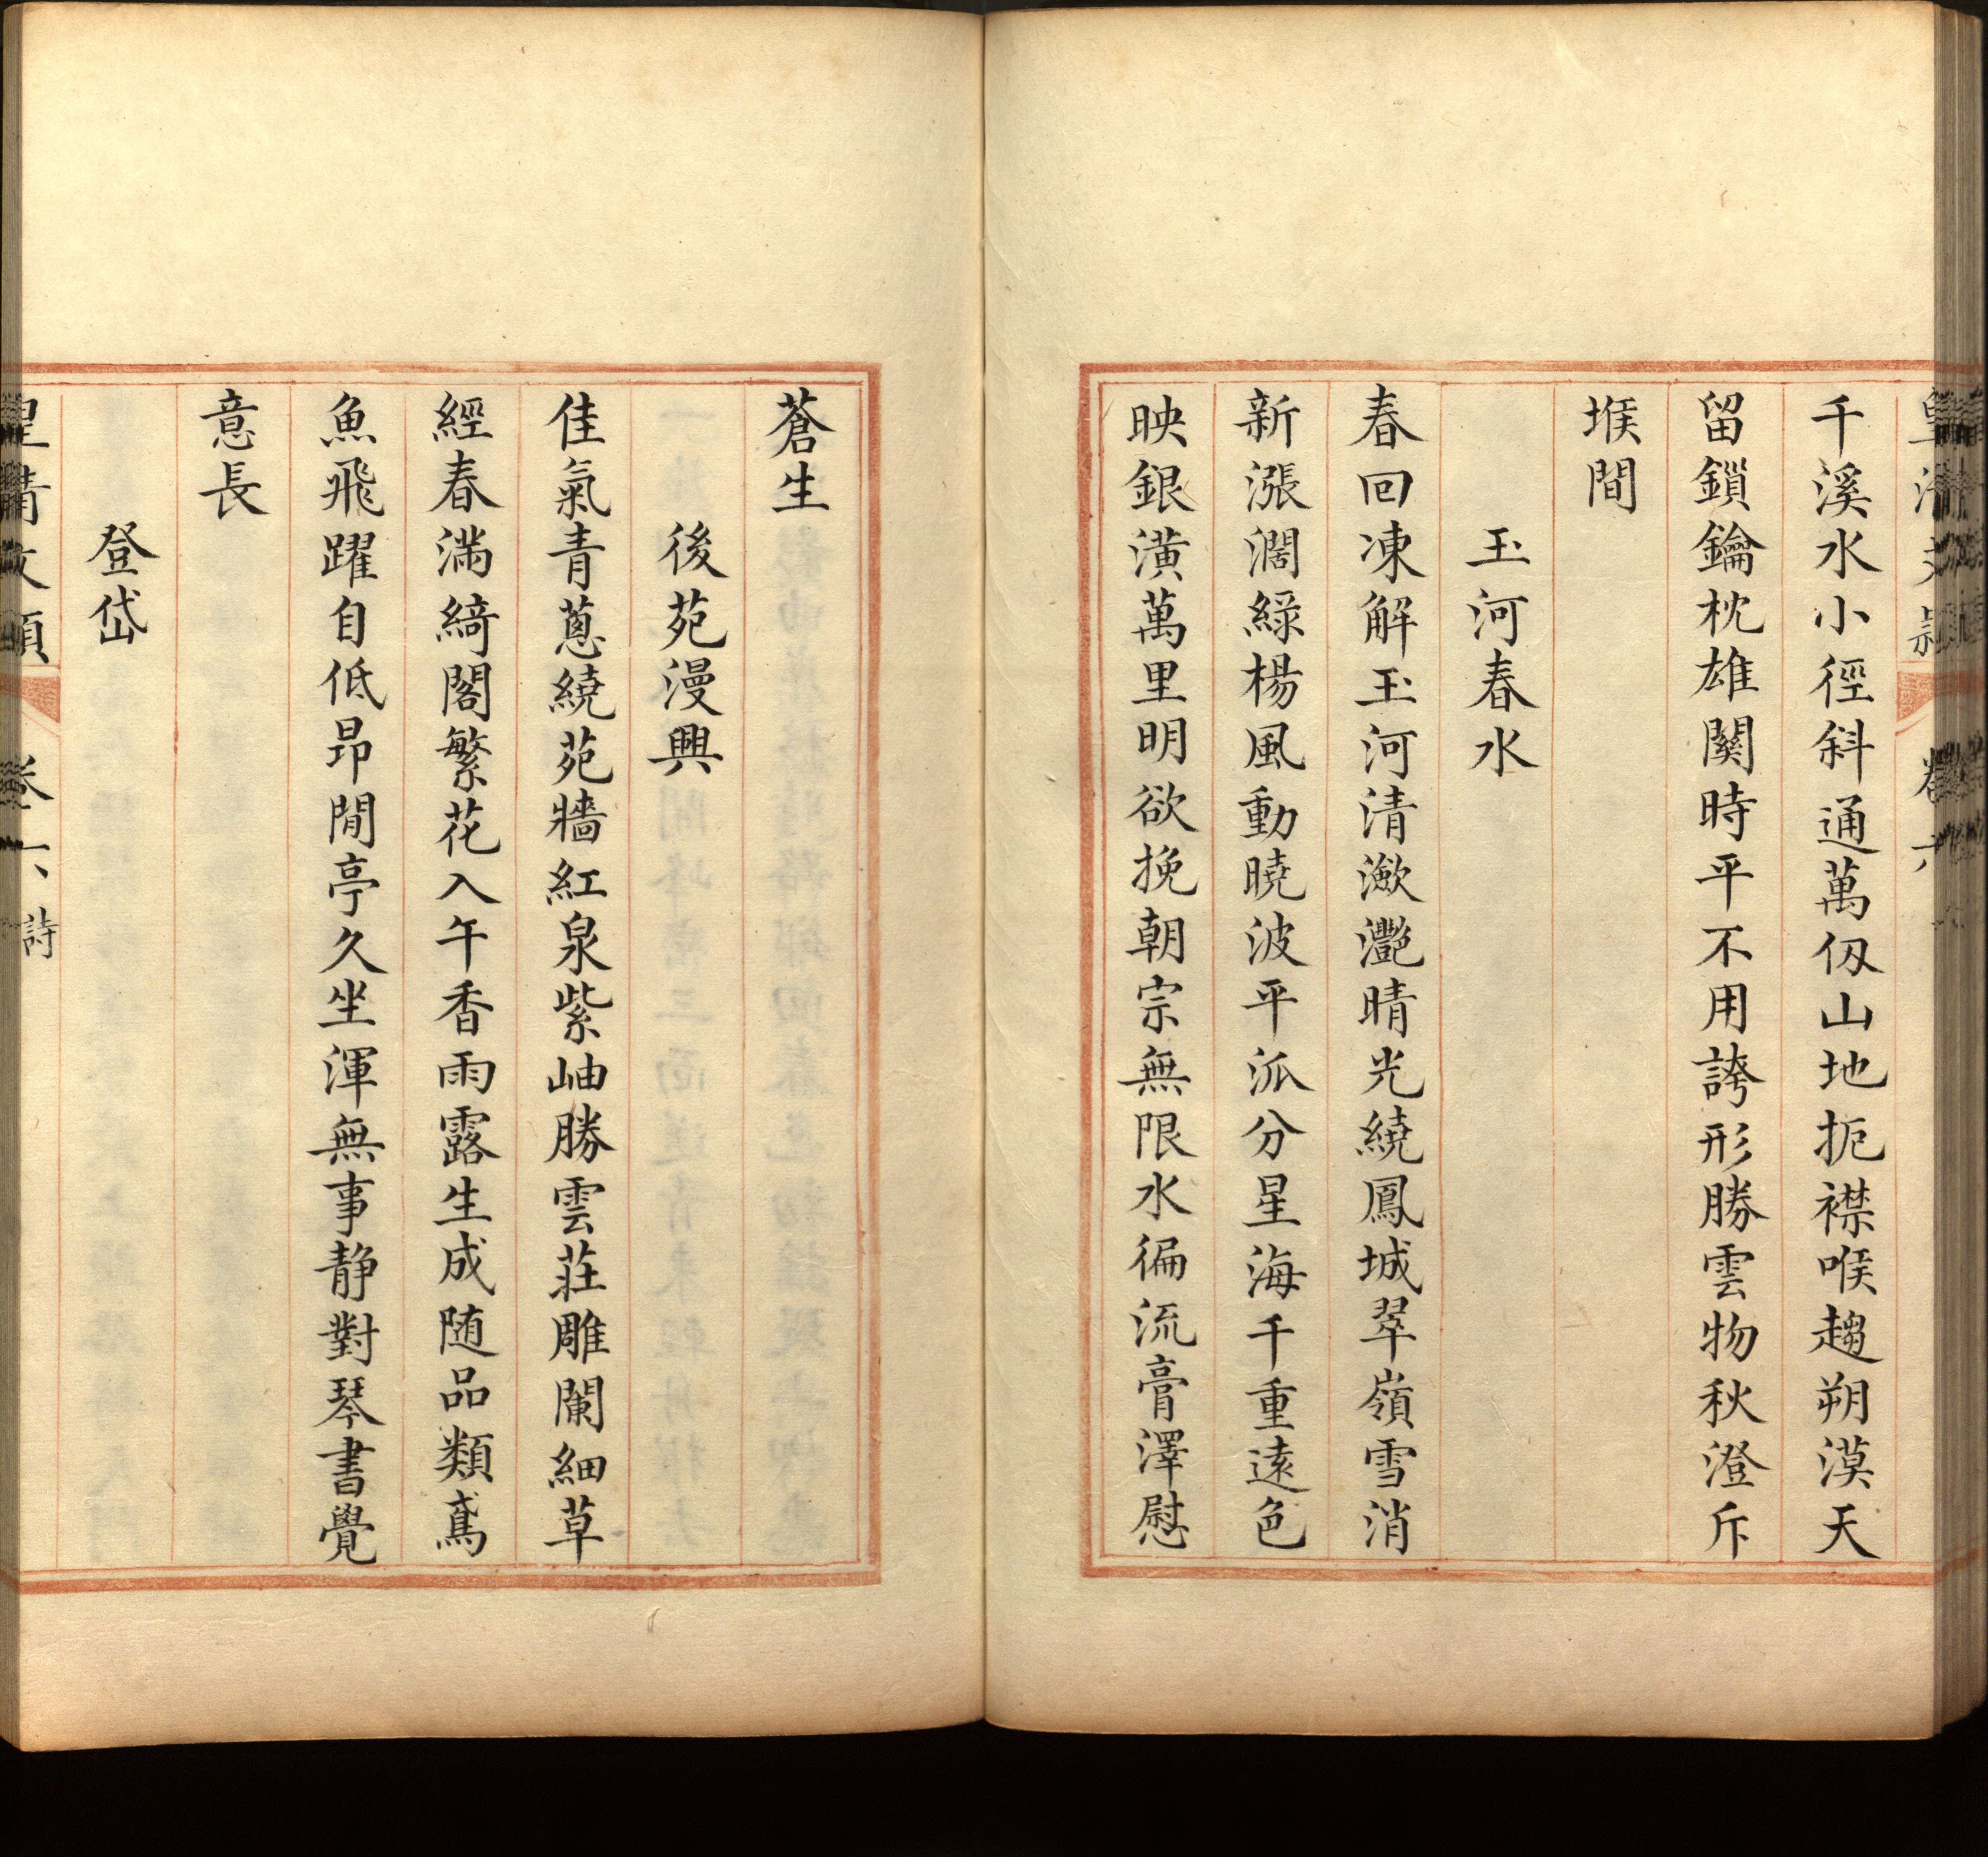 皇清文穎 卷六
千溪水小徑斜通萬仭山地扼襟喉趨朔漠天
留鎖鑰枕雄關時平不用誇形勝雲物秋澄斥
堠間
玉河春水
春回凍解玉河清瀲灧晴光繞鳳城翠嶺雪消
新漲濶綠楊風動曉波平泒分星海千重遠色
映銀潢萬里明欲挽朝宗無限水徧流膏澤慰
蒼生
後苑漫興
佳氣青蔥繞苑牆紅泉紫岫勝雲莊雕闌細草
經春滿綺閣繁花入午香雨露生成随品類鳶
魚飛躍自低昂閒亭久坐渾無事静對琴書覺
意長
登岱
皇清文穎 卷六 詩